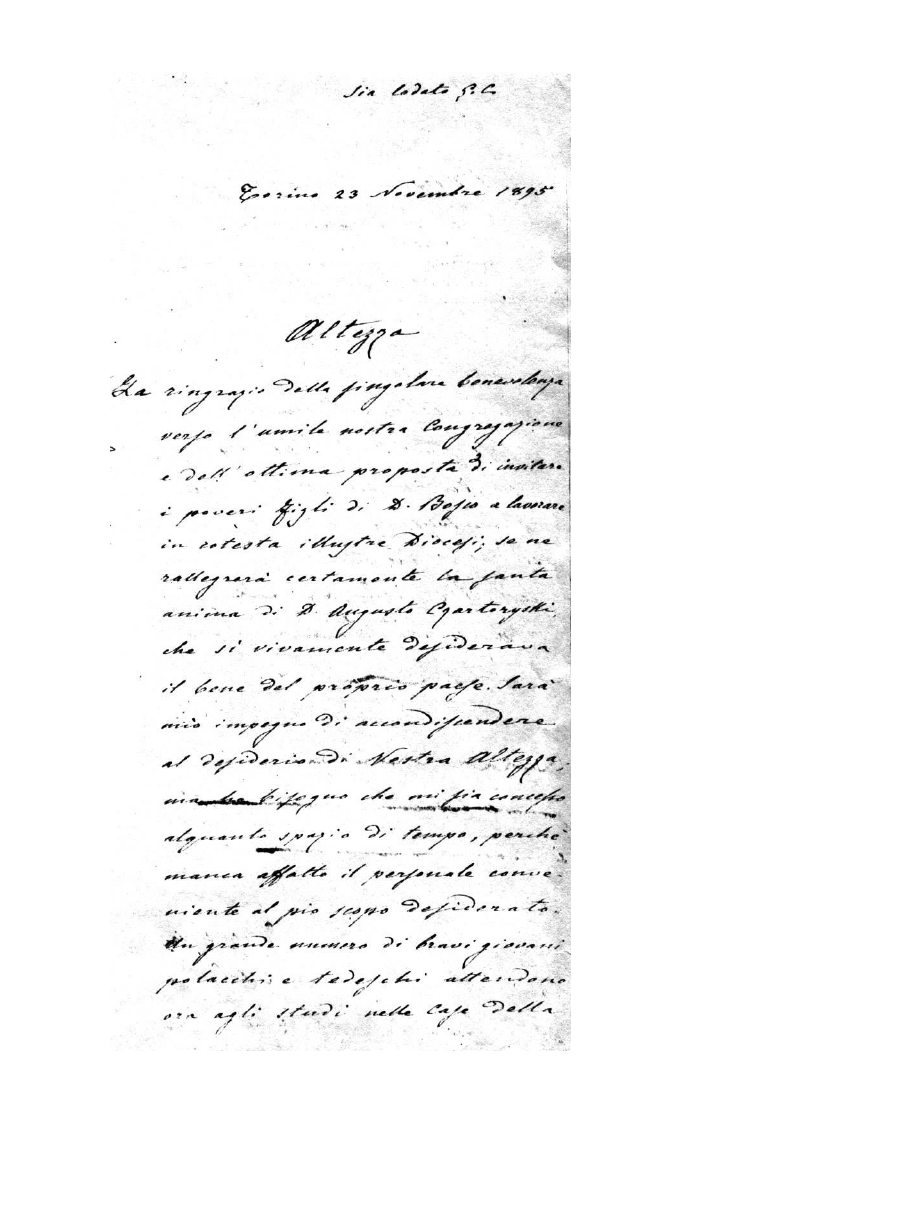 Sia lodato G. C.
Torino 23 Novembre 1895
Altezza
La ringrazio della singolare benevolenza
verso l'umile nostra Congregazione
e dell'ottima proposta di invitare
i poveri figli di D. Bosco a lavorare
in cotesta illustre Diocesi; se ne
rallegrerà certamente la santa
anima di D. Augusto Czartoryski,
che sì vivamente desiderava
il bene del proprio paese. Sarà
mio impegno di accondiscendere
al desiderio di Vostra Altezza,
ma ho bisogno che mi sia concesso
alquanto spazio di tempo, perchè
manca affatto il personale conve-
niente al pio scopo desiderato.
Un grande numero di bravi giovani
polacchi e tedeschi attendono
ora agli studi nelle Case della